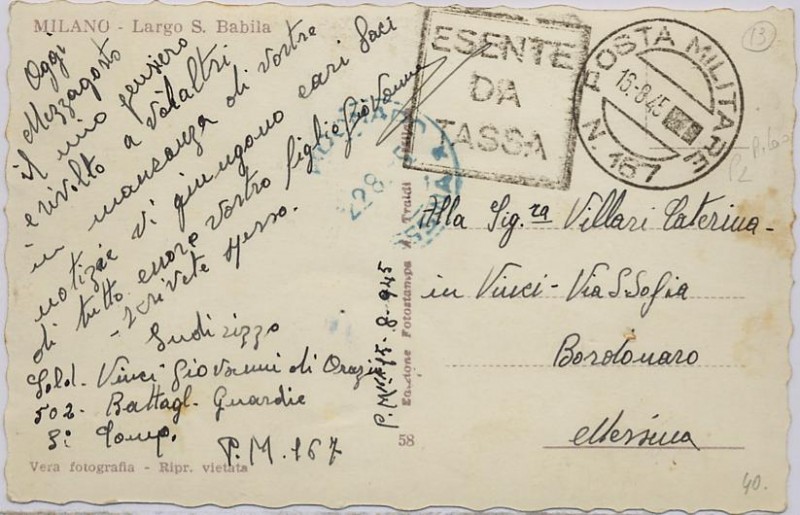 MILANO - Largo S. Babila
Oggi
Mezzagosto
il mio pensiero
e rivolto a voialtri
in mancanza di vostre
notizie vi giungono cari baci
di tutto cuore vostro figlio Giovanni
- Scrivete spesso.
Indirizzo
Sold. Vinci Giovanni di Orazio
502- Battagl. Guardie
5ª Comp.
P.M. 167
Vera fotografia - Ripr. vietata
P.M. 15-8-945
Edizione Fotostampa M. Traldi
58
ESENTE
DA
TASSA
POSTA MILITARE
16-8-45
N. 167
13
Alla Sig.ra Villari Caterina-
in Vinci - Via S Sofia
Bordonaro
Messina
40.